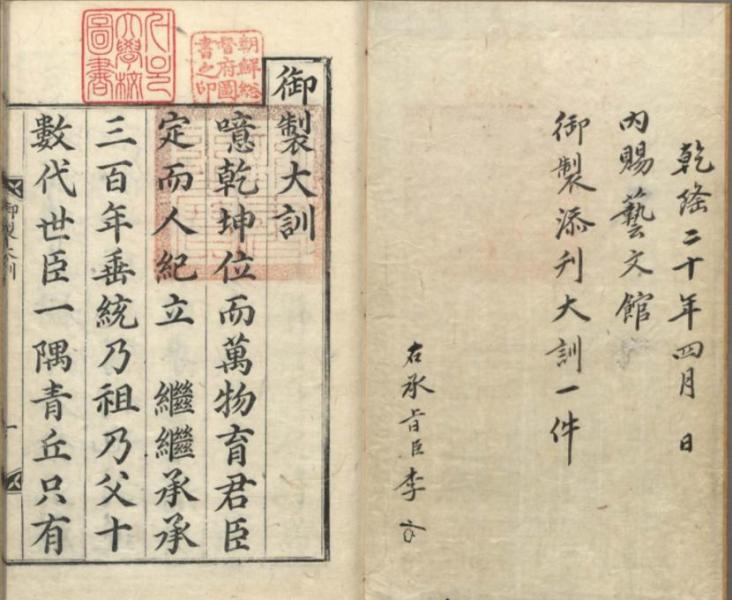 乾隆二十年四月 日
内賜藝文館
御製添刊大訓一件
右承旨臣李
朝鮮總
督府圖
書之印
大學校
圖書
御製大訓
噫乾坤位而萬物育君臣
定而人紀立 繼繼承承
三百年垂統乃祖乃父十
數代世臣一隅青丘只有
御製大訓 一